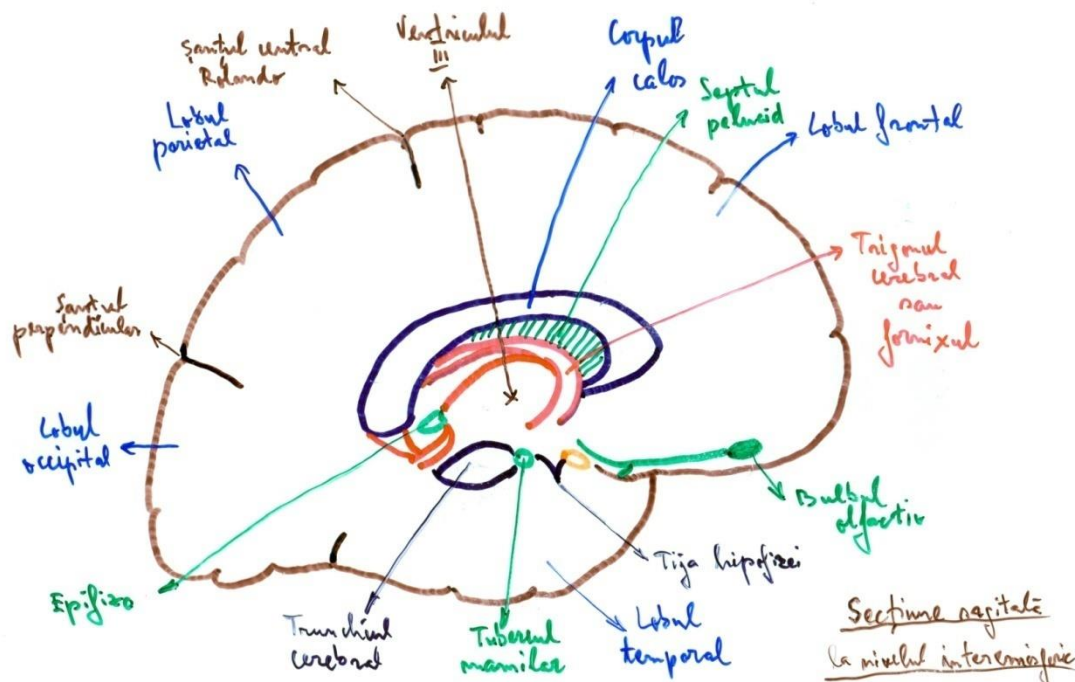 Șanțul central
Rolando
Ventriculul
III
Corpul
calos
Septul
pelucid
Lobul frontal
Lobul
parietal
Trigonul
cerebral
sau
fornixul
Șanțul
perpendicular
Lobul
occipital
Bulbul
olfactiv
Epifiza
Trunchiul
cerebral
Tuberul
mamilar
Lobul
temporal
Tija hipofizei
Secțiune sagitală
la nivelul interemisferic